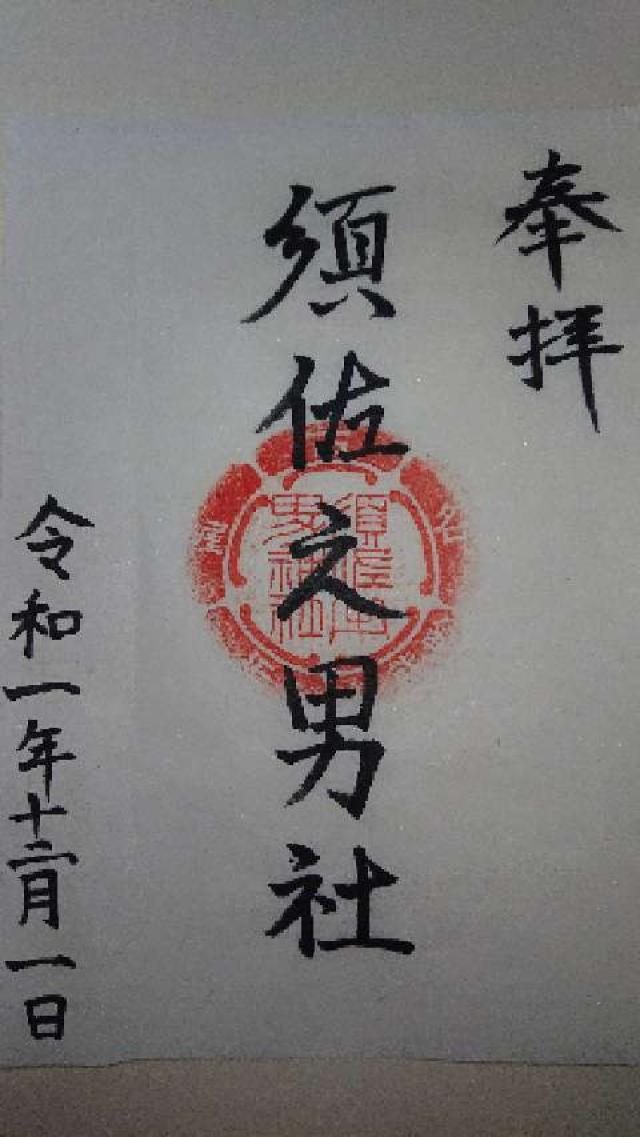 奉拝
須佐之男社
令和一年十二月一日